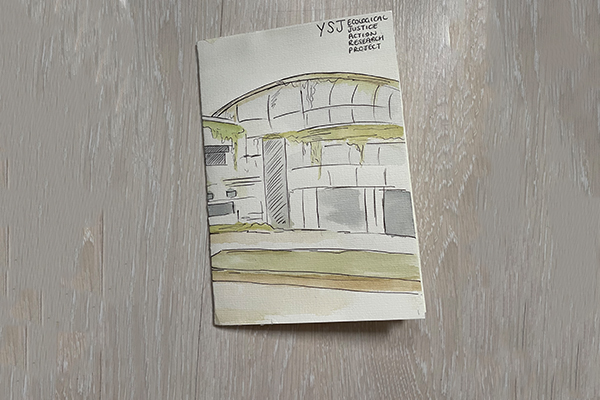 YSJ ECOLOGICAL
JUSTICE
ACTION
RESEARCH
PROJECT